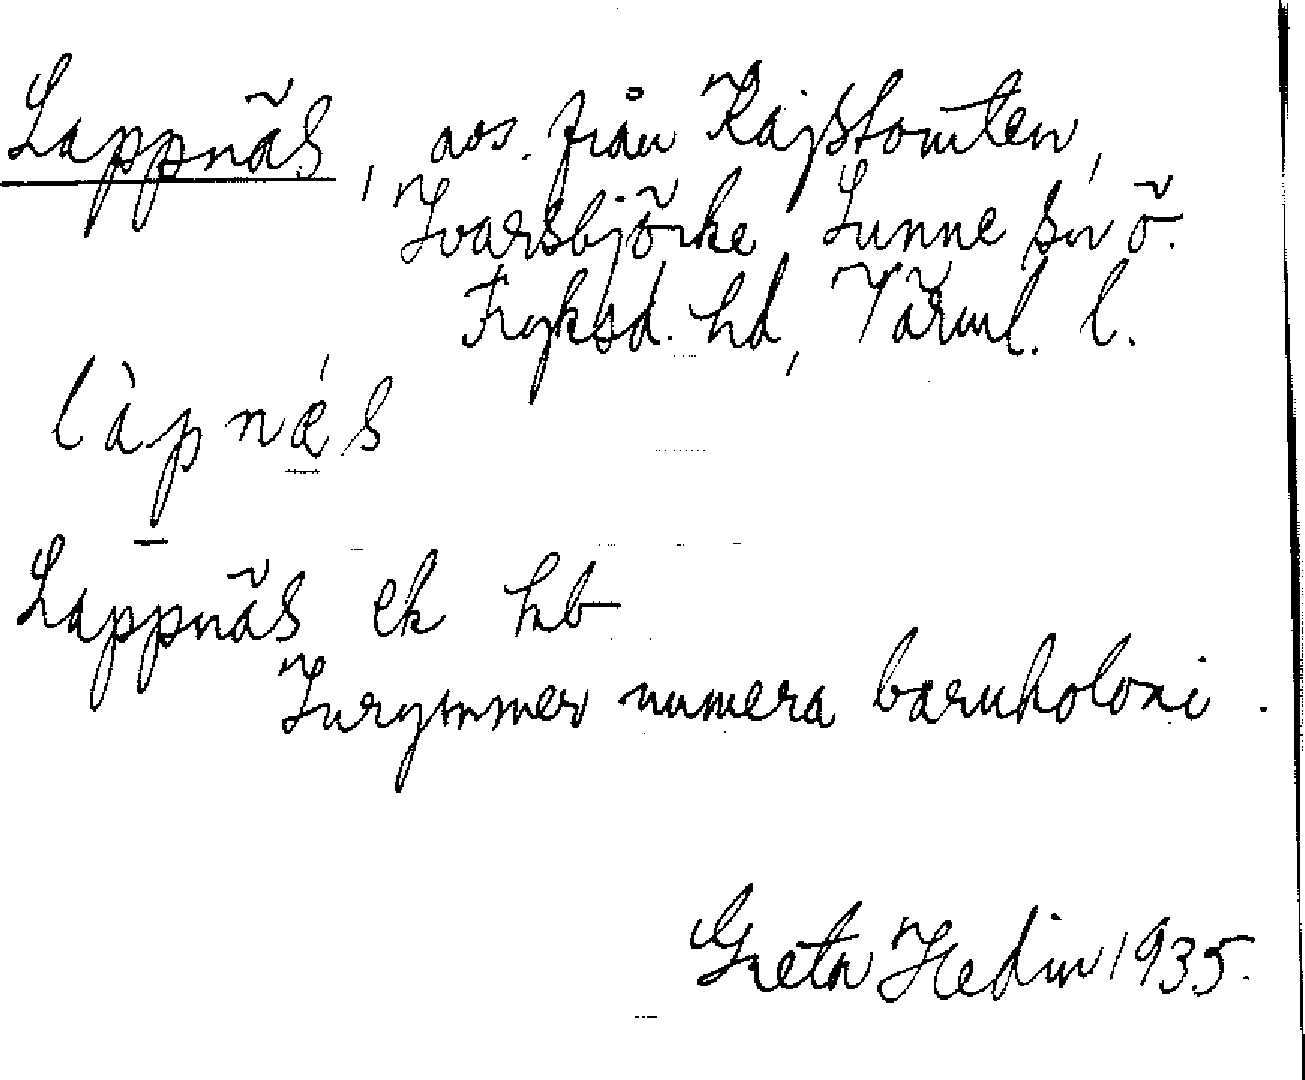 Lappnäs, avs. från Kajstomten,
Ivarsbjörke, Sunne sn ö.
Fryksd. hd, Värml. l.
làpnǽs
Lappnäs ek hb
Inrymmer numera barnkoloni.
Greta Hedin 1935.